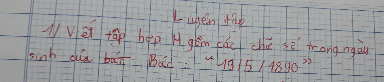 Luyện tập
1/ Viết tập hợp H gồm các chữ số trong ngày
sinh của bán Bác : " 19/5/1890 "